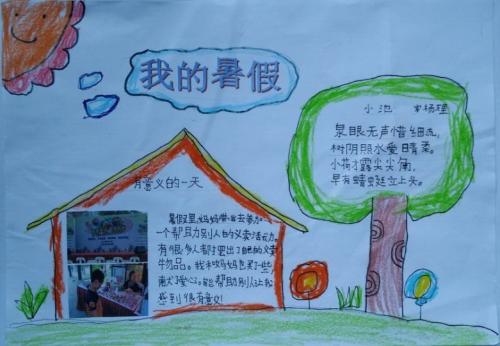 我的暑假
小池
泉眼无声惜细流,
树阴照水爱晴柔。
小荷才露尖尖角,
早有蜻蜓立上头。
有意义的一天
暑假里,妈妈带我去参加
一个帮助别人的义卖活动。
有很多人都拿出了自己的义卖
物品。我和妈妈也买了一些,
献了爱心。能帮助别人让我
感到很有意义!